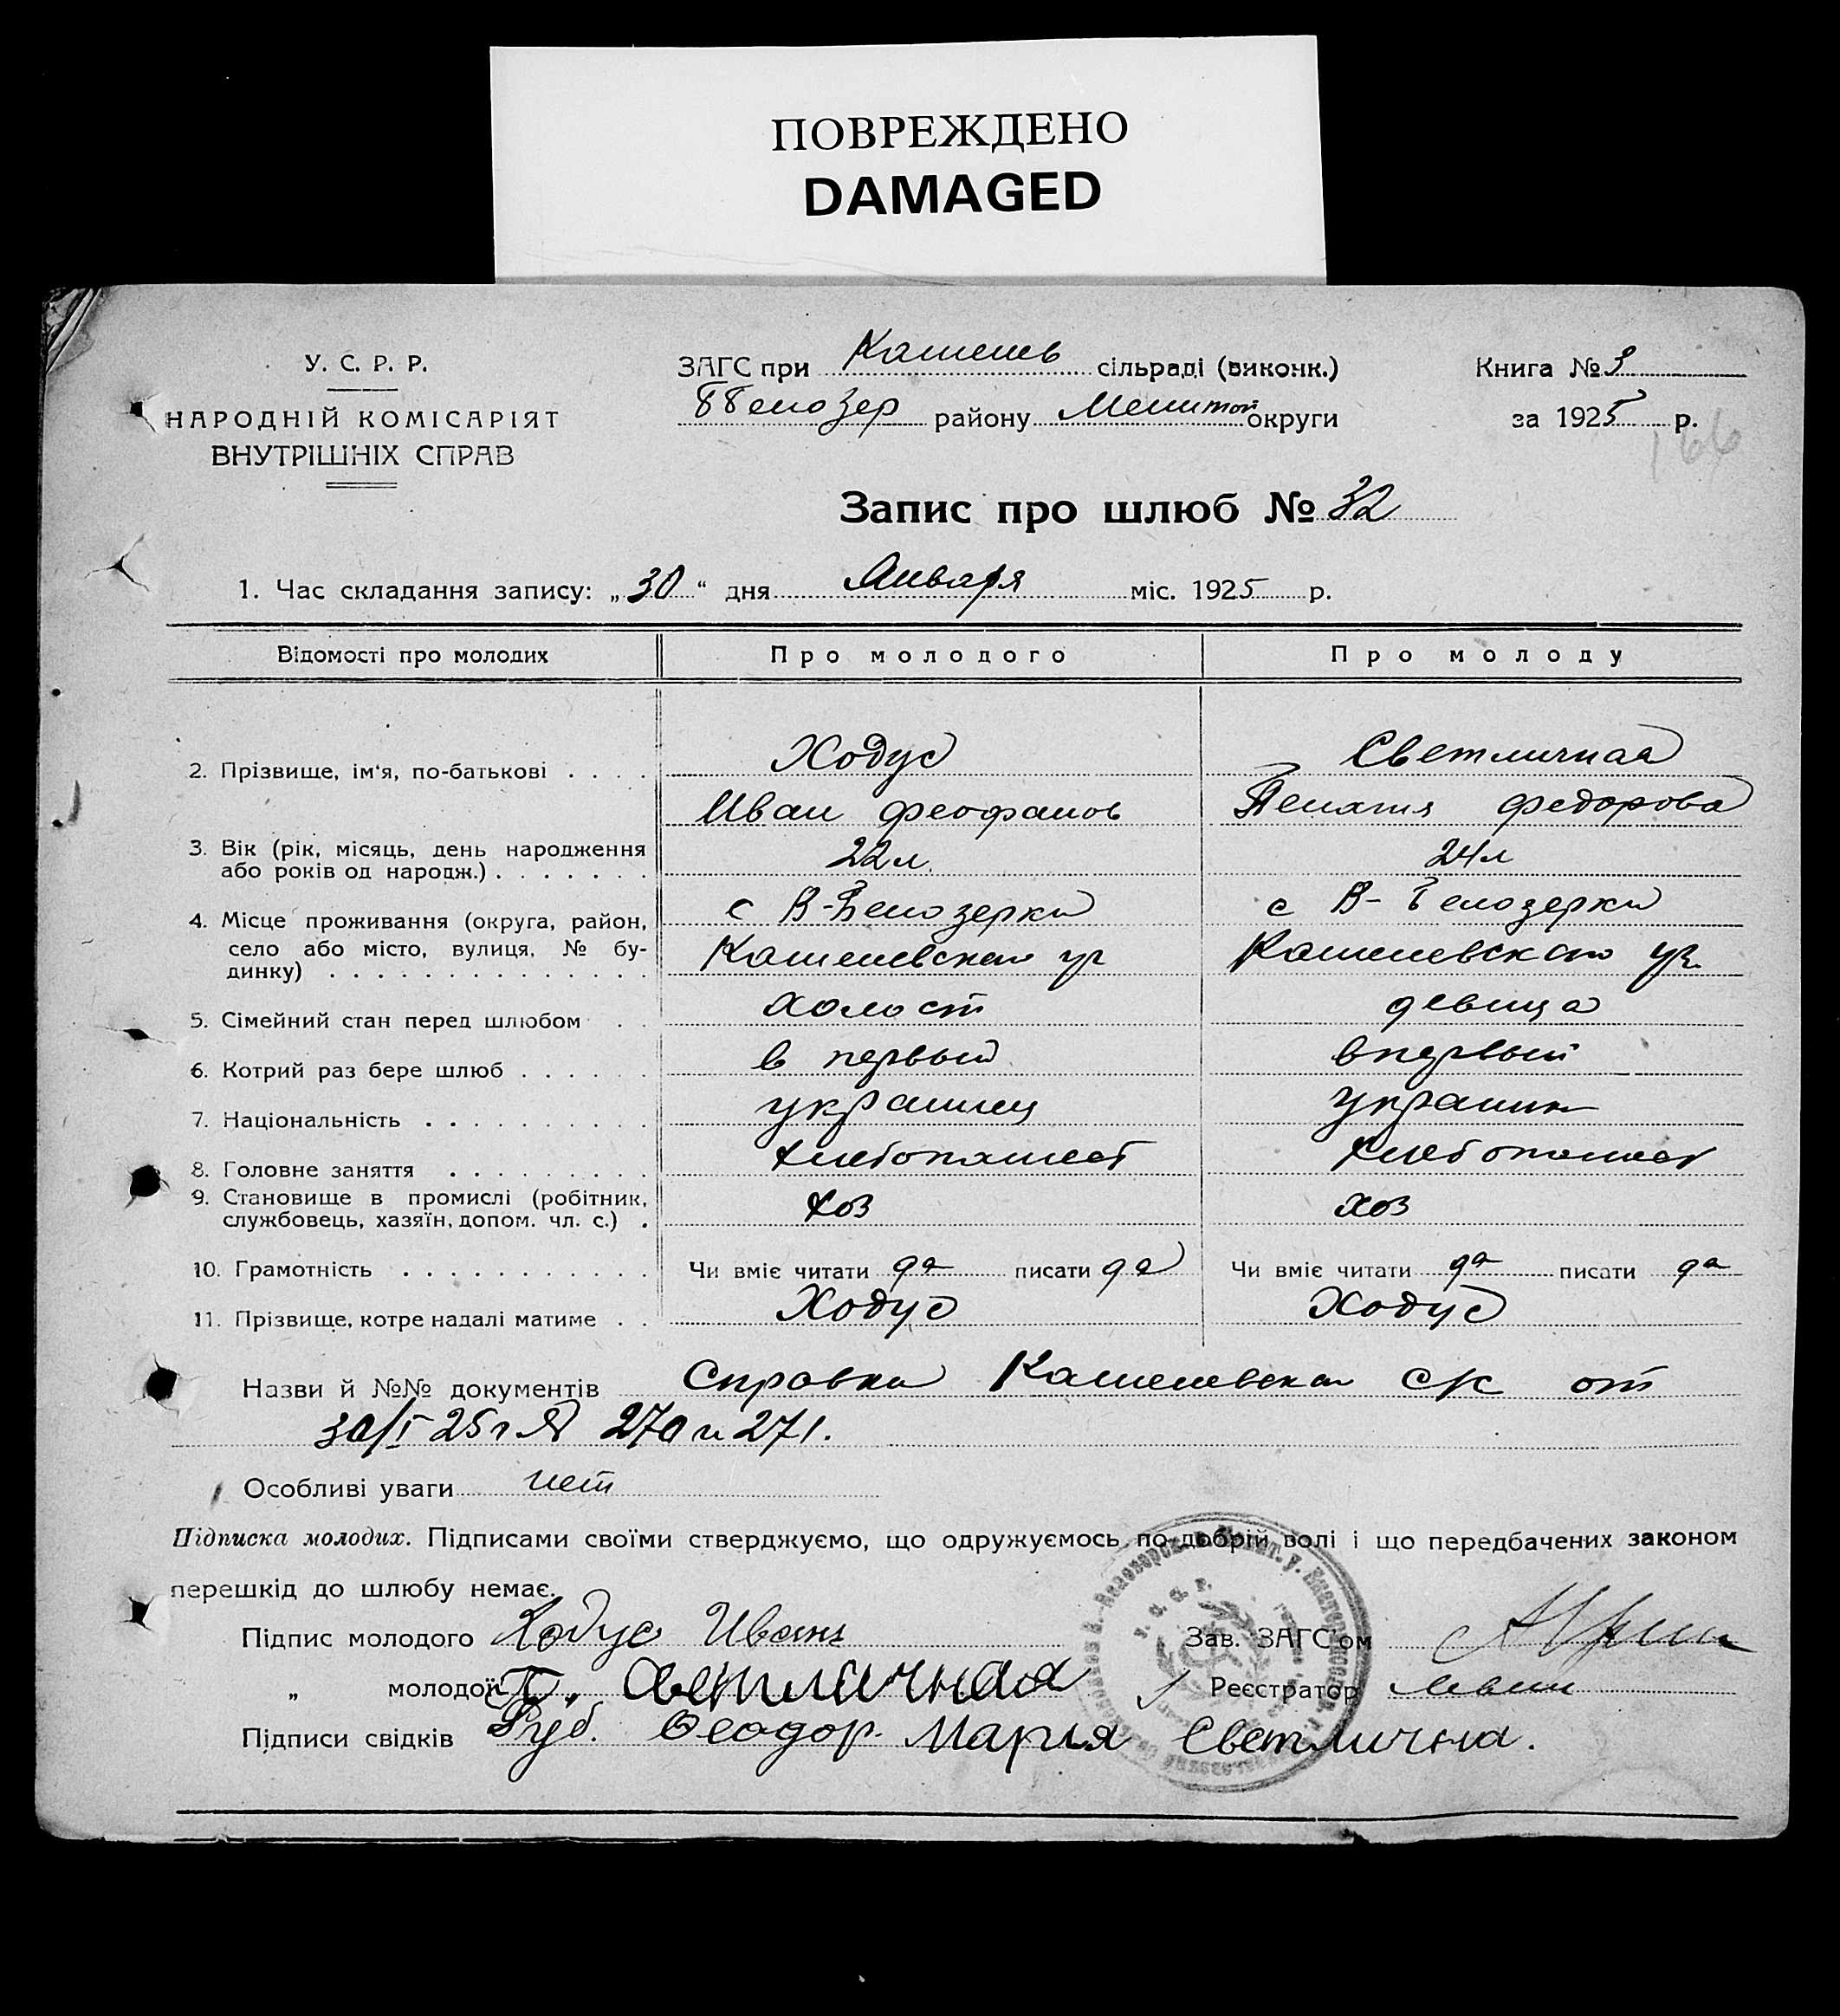 ПОВРЕЖДЕНО
DAMAGED
У. С. Р. Р.
НАРОДНІЙ КОМІСАРІЯТ
ВНУТРІШНІХ СПРАВ
ЗАГС при сільраді (виконк.)
району Мелитой округи
Книга №
за 1925 р.
166
Запис про шлюб № 32
1. Час складання запису: „30“ дня Января міс. 1925 р.
Відомості про молодих Про молодого Про молоду
2. Прізвище, ім'я, по-батькові . . . . Ходус Светличная
Иван Феофанов Федорова
3. Вік (рік, місяць, день народження 22 л. 24 л
або років од народж.) . . . . . . .
4. Місце проживання (округа, район, с В-Белозерки с В-Белозерки
село або місто, вулиця, № бу-
динку) . . . . . . . . . . . . . .
5. Сімейний стан перед шлюбом . . холост девица
6. Котрий раз бере шлюб . . . . . . в первый впервый
7. Національність . . . . . . . . . . украинец украин
8. Головне заняття . . . . . . . . . хлебопашест хлебопашест
9. Становище в промислі (робітник, хоз хоз
службовець, хазяїн, допом. чл. с.) .
10. Грамотність . . . . . . . . . . . Чи вміє читати да писати да Чи вміє читати да писати да
11. Прізвище, котре надалі матиме . . Ходус Ходус
Назви й №№ документів Справка с/к от
30/I 25 г № 270 и 271.
Особливі уваги нет
Підписка молодих. Підписами своїми стверджуємо, що одружуємось по-добрій волі і що передбачених законом
перешкід до шлюбу немає.
Підпис молодого Ходус Иванъ Зав. ЗАГС'ом
„ молодої П. Светличная Реєстратор
Підписи свідків Руб. Феодор. Марья Светлична.